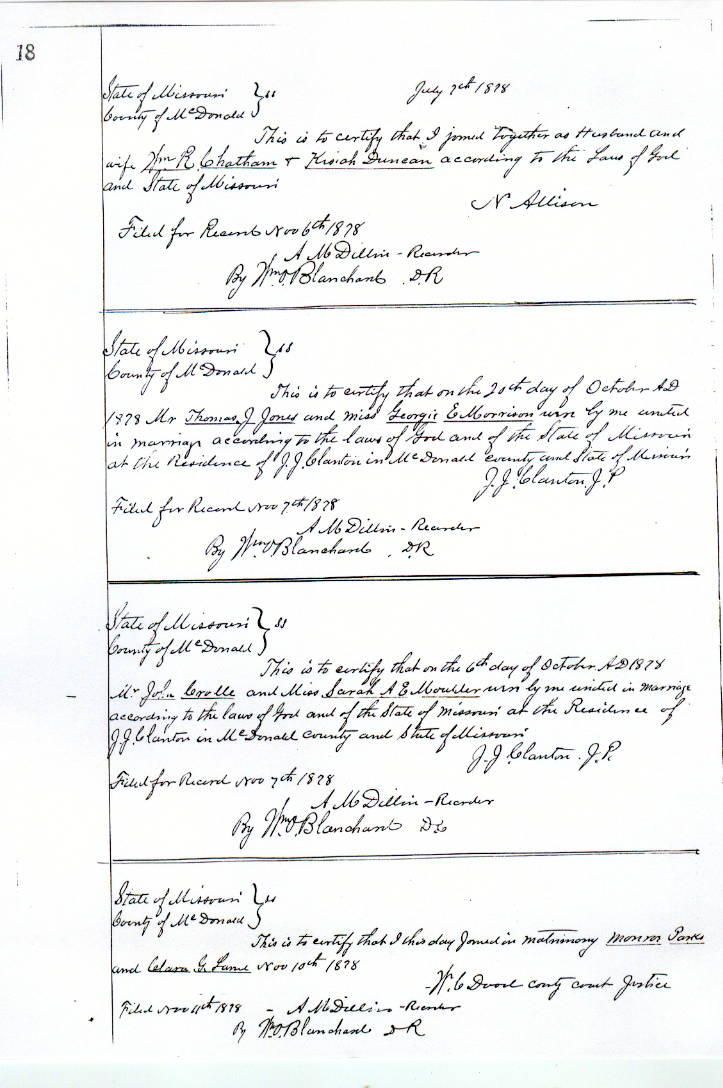 18
State of Missouri } ss July 7th 1878
County of McDonald
This is to certify that I joined together as Husband and
wife Wm R Chatham & Kisiah Duncan according to the Laws of God
and State of Missouri
N Allison
Filed for Record Nov 6th 1878
A McDillin - Recorder
By Wm O Blanchard D.R
State of Missouri } ss
County of McDonald
This is to certify that on the 20th day of October AD
1878 Mr Thomas J Jones and miss Georgie E Morrison were by me united
in marriage according to the laws of God and of the State of Missouri
at the Residence of J.J. Clanton in McDonald county and State of Missouri
J.J. Clanton J.P
Filed for Record Nov 7th 1878
A McDillin - Recorder
By Wm O Blanchard D.R
State of Missouri } ss
County of McDonald
This is to certify that on the 6th day of October AD 1878
Mr John Crolle and Miss Sarah A E Moulder were by me united in marriage
according to the laws of God and of the State of Missouri at the Residence of
J.J. Clanton in McDonald County and State of Missouri
J.J Clanton. J.P.
Filed for Record Nov 7th 1878
A McDillin - Recorder
By Wm O Blanchard
State of Missouri } ss
County of McDonald
This is to certify that I this day Joined in matrimony Monroe Parks
and Clara G. Nov 10th 1878
W. C county court Justice
Filed Nov 11th 1878 - A McDillin - Recorder
By Wm O. Blanchard D R